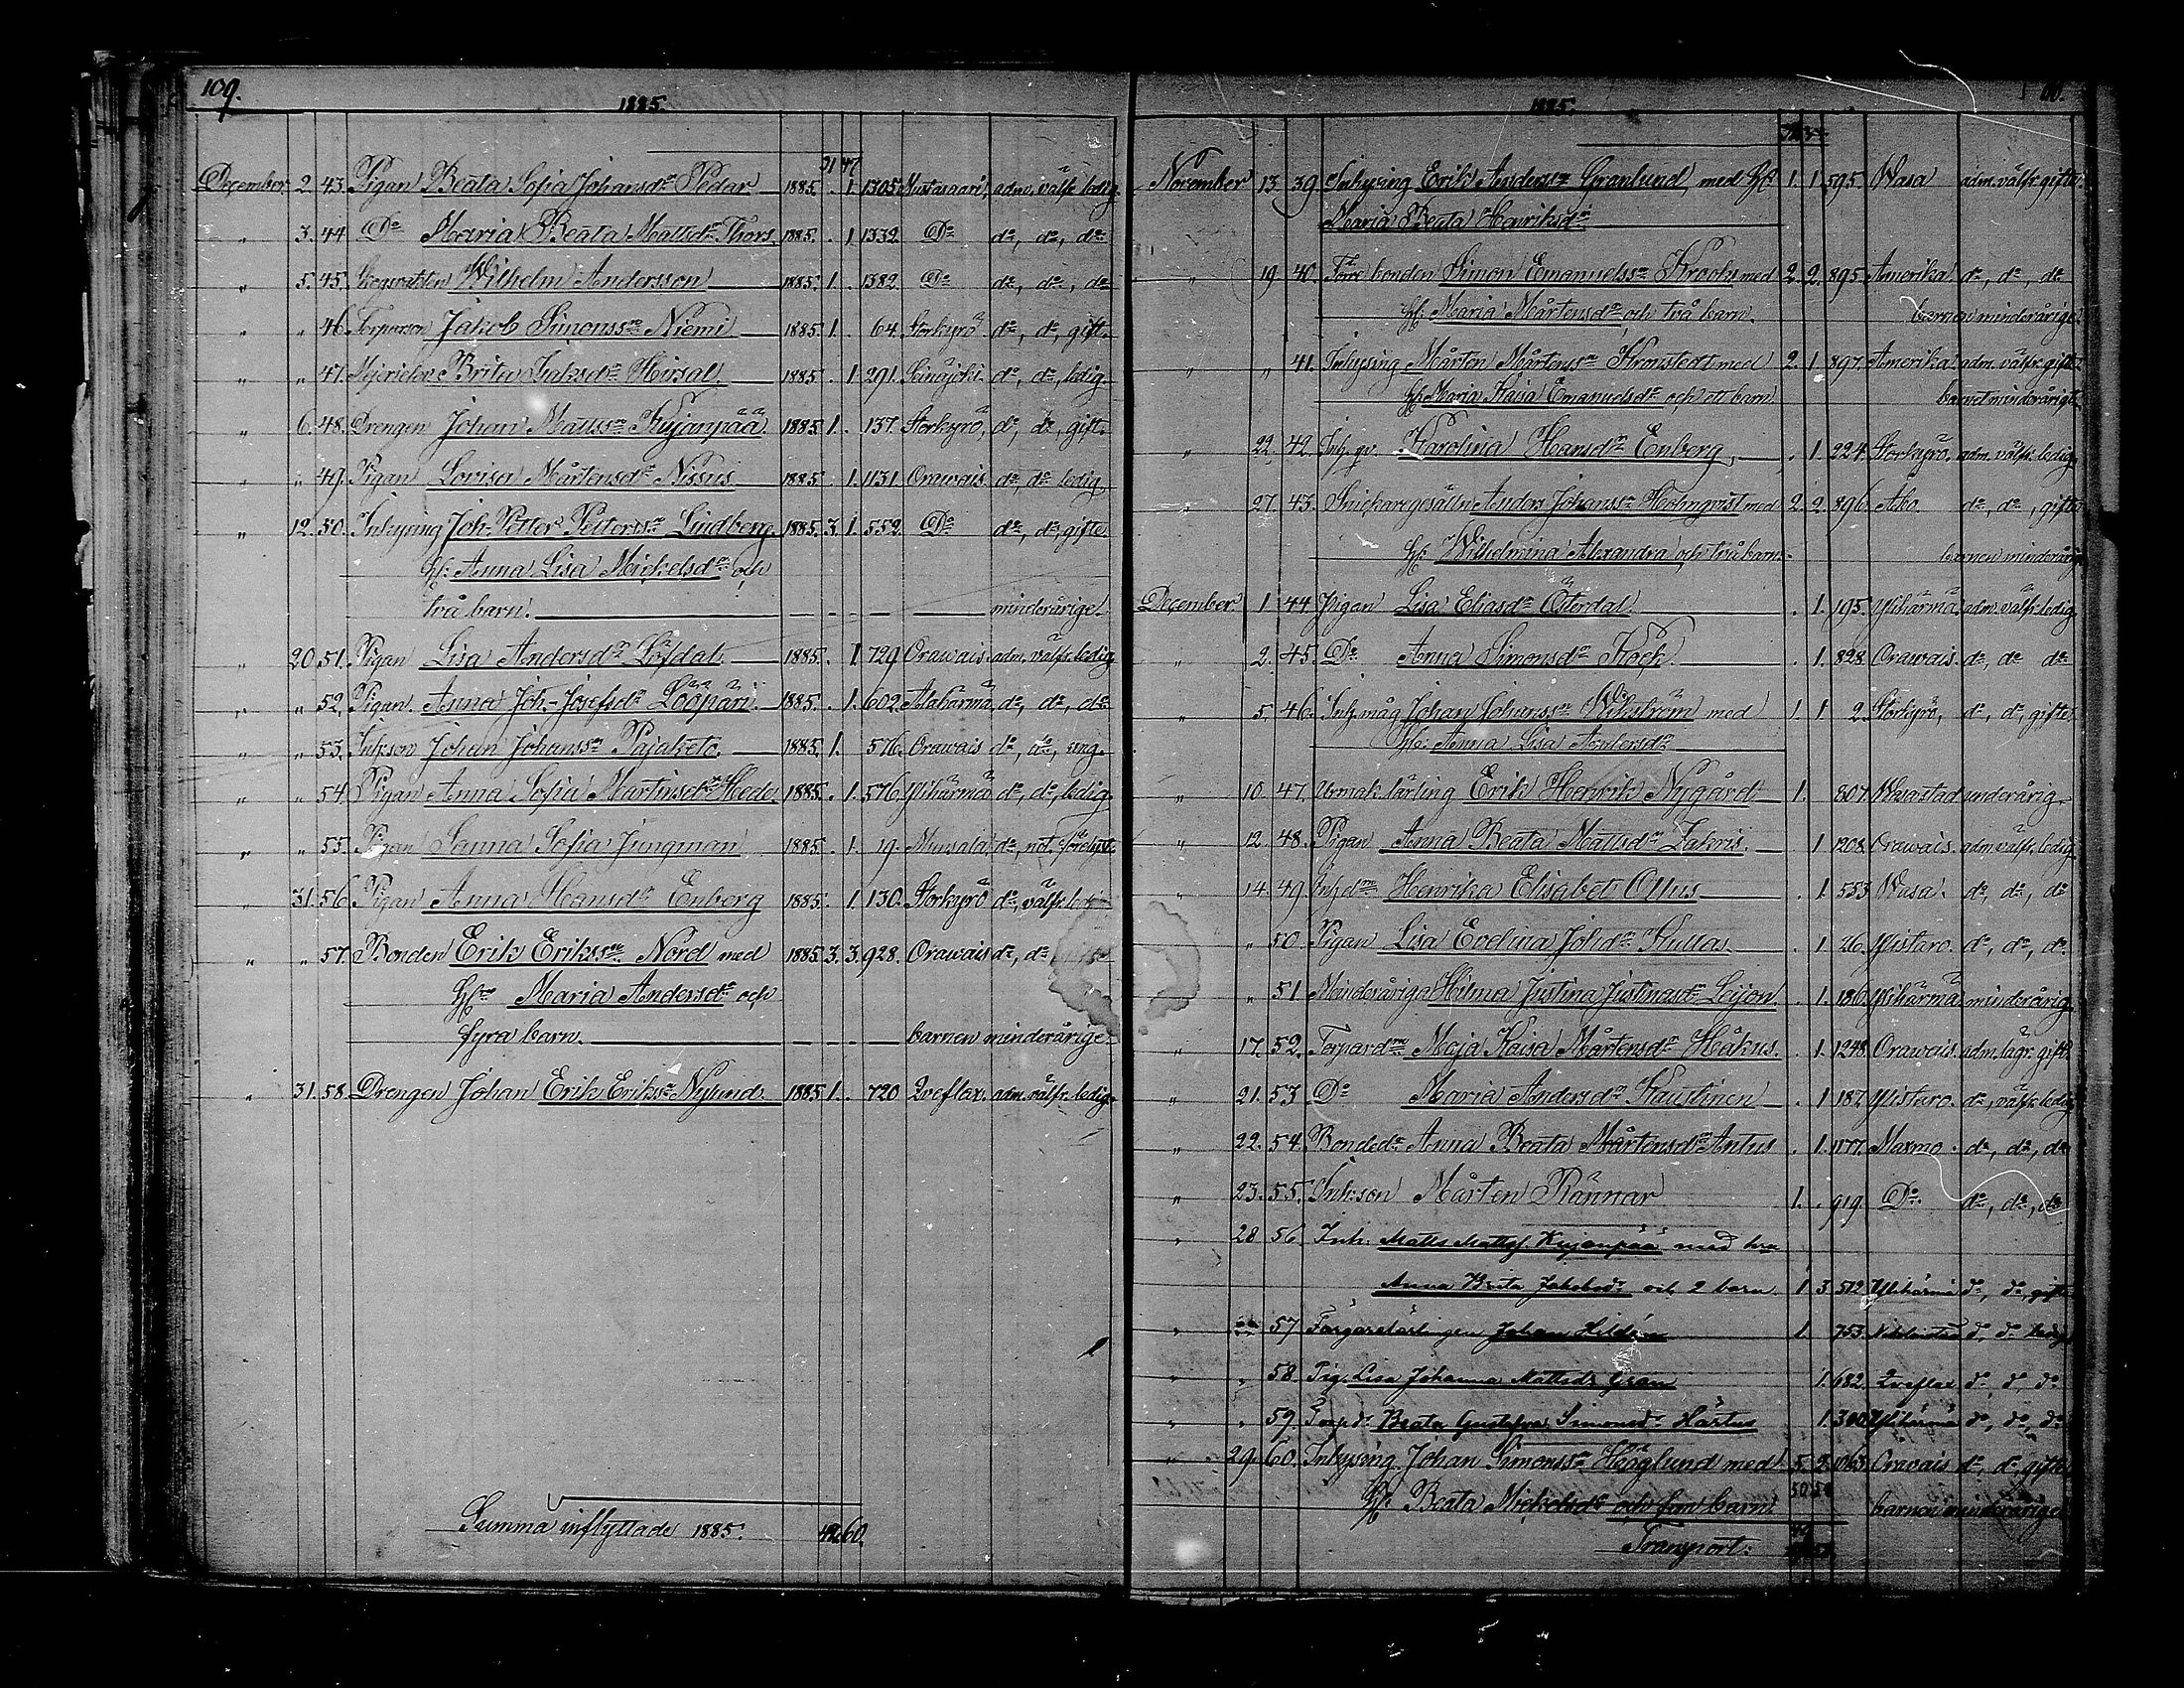 109.
1885.
31 47
December 2 43. Pigan Beata Sofia Johansdr Pedar 1885. . 1. 1305 Mustasaari, adm. välfr. ledig.
" 3. 44 Do Maria Beata Mattsdr Thors 1885. . 1 1332. Do do, do, do
" 5. 45. Wilhelm Andersson 1885. 1. . 1382. Do do, do, do
" " 46. Torparson Jakob Simonssn Niemi 1885. 1. . 64. Storkyrö do, do, gift.
" " 47. Mejerielev Brita Isaksdr Hirsal 1885. . 1. 291. Seinäjoki. do, do, ledig.
" 6. 48. Drengen Johan Mattssn Kujanpää 1885. 1. . 137. Storkyrö, do, do, gift.
" " 49. Pigan Lovisa Mårtensdr Nissus 1885. . 1. 1131 Orawais. do, do ledig
" 12. 50. Inhysing Joh. Petter Petterssn Lindberg. 1885. 3. 1. 552. Do. do, do, gifte
Hu. Anna Lisa Mickelsdr och
två barn. minderårige.
" 20. 51. Pigan Lisa Andersdr Löfdal. 1885. . 1 729 Orawais. adm. välfr. ledig
" " 52. Pigan. Anna Joh.-Josefsdr Lööpäri. 1885. . 1. 602. Alahärmä do, do, do
" " 53. Inhson Johan Johanssn Pajaketo. 1885. 1. 576. Orawais do, do, ung.
" " 54. Pigan Anna Sofia Martinsdr Hede. 1885. . 1. 576. Ylihärmä do, do, ledig.
" " 55. Pigan Sanna Sofia Jungman 1885. . 1. 19. Munsala, do, nd.
" 31. 56. Pigan Anna Hansdr Enberg 1885. . 1. 130. Storkyrö do, välfr. ledig
" " 57. Bonden Erik Erikssn Nord med 1885. 3. 3. 928. Orawais do, do
Hu Maria Andersdr och
fyra barn. barnen minderårige.
" 31. 58. Drengen Johan Erik Erikssn Nylund. 1885. 1. . 720 Qveflax. adm. välfr. ledig.
Summa inflyttade 1885. 42. 60.
1885.
November 13 39 Inhysing Erik Anderssn Granlund med Hu. 1. 1. 595. Wasa adm. välfr. gifte.
Maria Beata Henriksdr
" 19 40. Förre bonden Simon Emanuelssn Krook med 2. 2. 895. Amerika do, do, do
Hu. Maria Mårtensdr och två barn. barnen minderårige
" " 41. Inhysing Mårten Mårtenssn Kronstedt med 2. 1. 897. Amerika. adm. välfr. gifte
Hu. Maria Kaisa Emanuelsdr och ett barn barnet minderårigt
" 22. 42. Inh. qv. Karolina Hansdr Enberg, . 1. 224. Storkyrö. adm. välfr. ledig.
" 27. 43. Snickaregesälln Anders Johanssn Holmqvist med 2. 2. 896. Åbo. do, do, gifte
Hu. Wilhelmina Alexandra och två barn. barnen minderårige
December 1 44 Pigan Lisa Eliasdr Österdal. . 1. 195. Ylihärmä. adm. välfr. ledig.
" 2. 45. Do Anna Simonsdr Kock. . 1. 828. Orawais. do, do do
" 5. 46. Inh. måg Johan Johanssn Wikström med 1. 1. 2. Storkyrö, do, do, gifte
Hu. Anna Lisa Andersdr
" 10. 47. Urmak. lärling Erik Henrik Nygård 1. 807. Wasa stad underårig.
" 12. 48. Pigan Anna Beata Mattsdr Jakris. . 1 1208. Orawais. adm. välfr. ledig
" 14. 49. Henrika Elisabet Ollus . 1. 553. Wasa. do, do, do
" " 50. Pigan Lisa Evelina Johdr Kulla . 1. 26. Ylistaro. do, do, do.
" " 51 Minderåriga Hilma Justina Justinasdr Leijon. . 1. 186. Ylihärmä minderårig
" 17. 52. Torpardr Maja Kaisa Mårtensdr Håkus. . 1. 1248. Orawais. adm. lagr. gift.
" 21. 53 Do Maria Andersdr Kaustinen . 1 187. Ylistaro. do, välfr. ledig
" 22. 54. Bondedr Anna Beata Mårtensdr Antus . 1. 1177. Maxmo. do, do, do
" 23. 55. Inh. son Mårten Rännar 1. . 919. Do. do, do, do
" 28 56. Inh. Matts Mattss. Kujanpää med hu
Anna Brita Jakobsdr och 2 barn. 1. 3. 512. Ylihärmä do, do, gifte
" 57 Färgarelärlingen Johan Hildén 1. 753. do, do ledig
" " 58 Pig. Lisa Johanna Mattsdr Gran 1. 682. Qveflax do, do, do
" " 59. Torpdr Beata Gustafva Simonsdr Härtus 1. 300. Ylihärmä do, do, do
" 29. 60. Inhysing. Johan Simonssn Höglund med 5. 2. 1063. Oravais do, do, gifte
Hu. Beata Mickelsdr och fem barn. barnen minderårige
Transport: